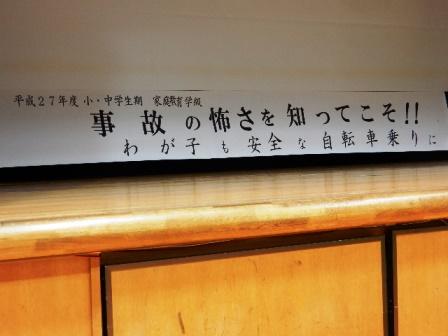 平成27年度 小・中学生期 家庭教育学級
事故の怖さを知ってこそ!!
わが子も安全な自転車乗りに